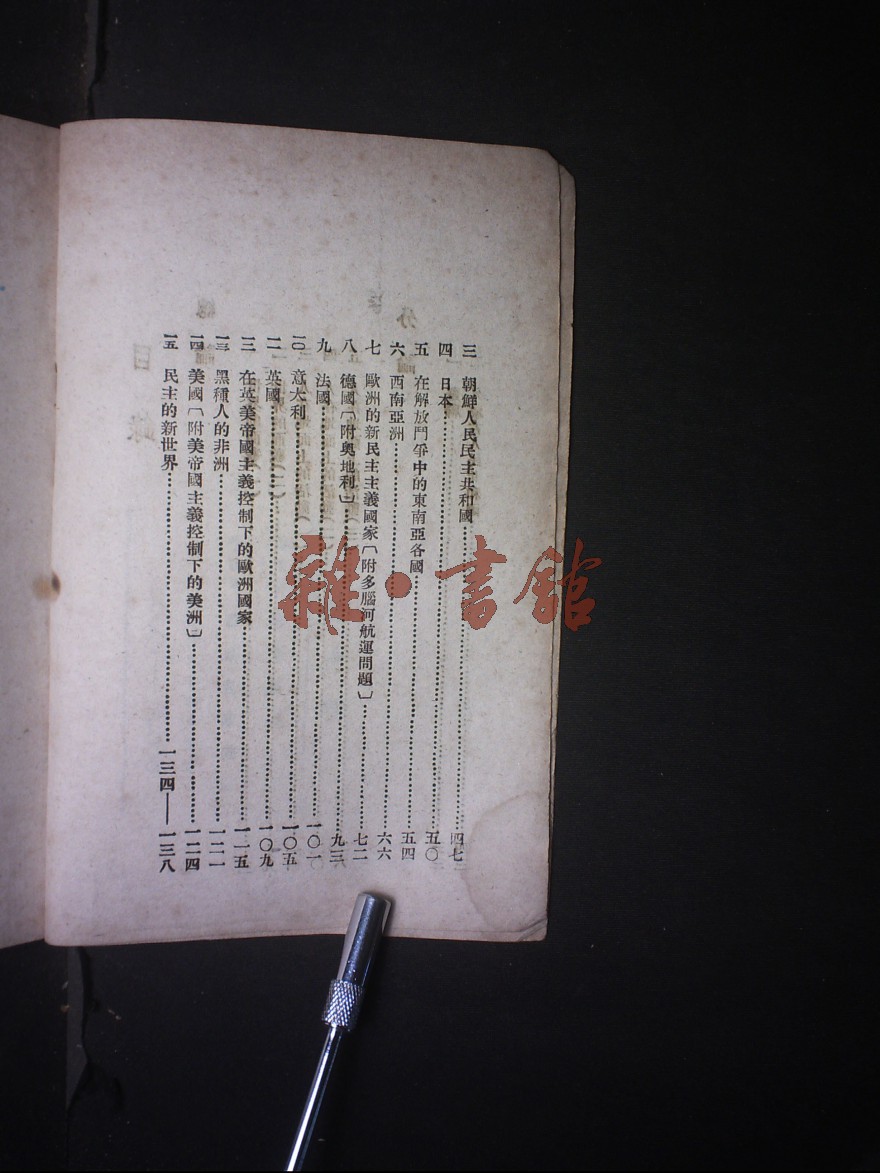 三 朝鮮人民民主共和國……四七
四 日本……五〇
五 在解放鬥爭中的東南亞各國……五四
六 西南亞洲……六六
七 歐洲的新民主主義國家〔附多腦河航運問題〕……七二
八 德國〔附奧地利〕……九三
九 法國……一〇一
一〇 意大利……一〇五
一一 英國……一〇九
一二 在英美帝國主義控制下的歐洲國家……一一五
一三 黑種人的非洲……一二一
一四 美國〔附美帝國主義控制下的美洲〕……一二四
一五 民主的新世界……一三四——一三八
雜·書館